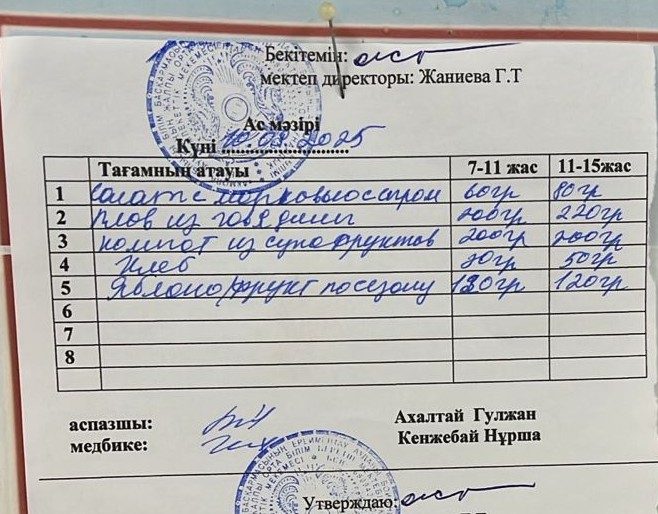 Бекітемін:
мектеп директоры: Жаниева Г.Т
Ас мәзірі
Күні 10.09.2025
Тағамның атауы 7-11 жас 11-15жас
1 Салат с морковью с сыром 60гр 80гр
2 плов из говядины 200гр 220гр
3 компот из сухофруктов 200гр 200гр
4 Хлеб 50гр
5 Яблоко/фрукт по сезону 120гр
6
7
8
аспазшы: Ахалтай Гулжан
медбике: Кенжебай Нұрша
Утверждаю: